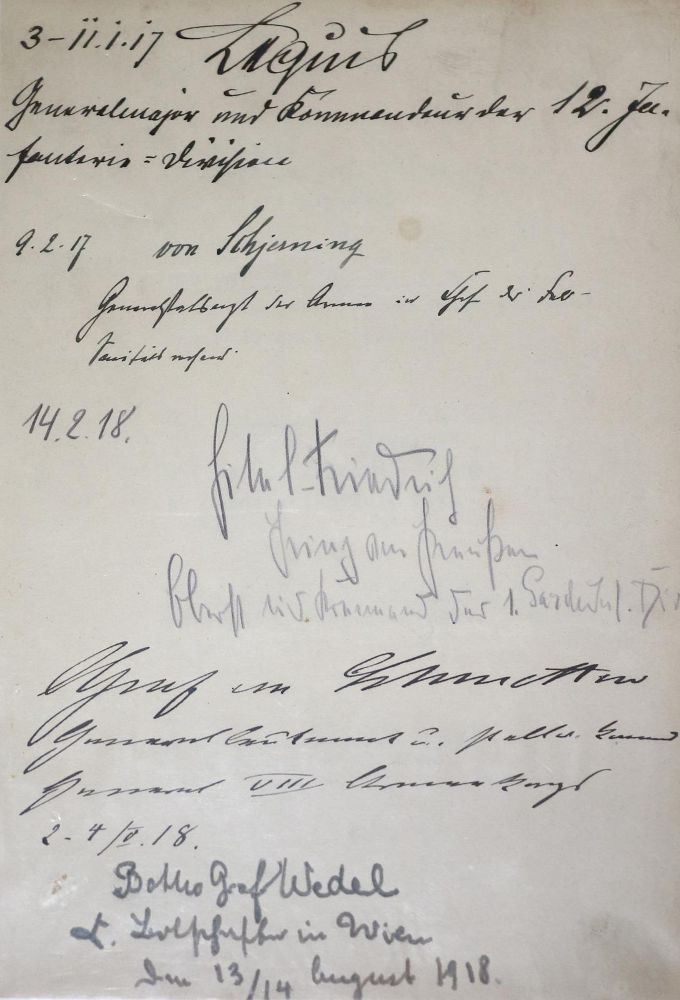 3-11.1.17 Lequis
Generalmajor und Kommandeur der 12. In-
fanterie=Division
9.2.17 von Schjerning
Generalstabsarzt der Armee u Chef des Feld-
Sanitätswesens
14.2.18.
Eitel-Friedrich
Prinz von Preußen
Oberst und Kommand der 1. Garde Inf. Div
Graf von
Generalleutnant u. stellv. Komm
General VIII Armeekorps
2-4/V.18.
Botho Graf Wedel
k. Botschafter in Wien
den 13/14 August 1918.